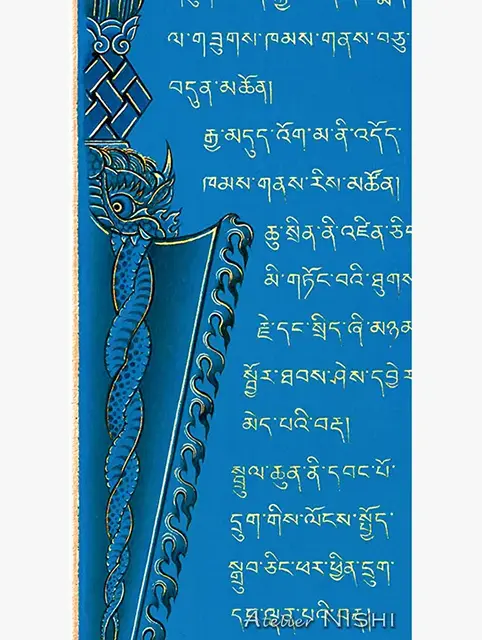 ལ་གཟུགས་ཁམས་གནས་བཅུ་
བདུན་མཚོན།
རྒྱ་མདུད་འོག་མ་ནི་འདོད་
ཁམས་གནས་རིས་མཚོན།
ཆུ་སྲིན་ནི་འཛིན་ཅིང་
མི་གཏོང་བའི་ཐུགས་
རྗེ་དང་སྲིད་ཞི་མཉམ་
སྦྱོར་ཐབས་ཤེས་དབྱེར་
མེད་པའི་བརྡ།
སྦྲུལ་ཆུན་ནི་དབང་པོ་
དྲུག་གིས་ལོངས་སྤྱོད་
སྒྲུབ་ཅིང་ཕར་ཕྱིན་དྲུག་
དང་ལྡན་པའི་བརྡ།
Atelier NISHI